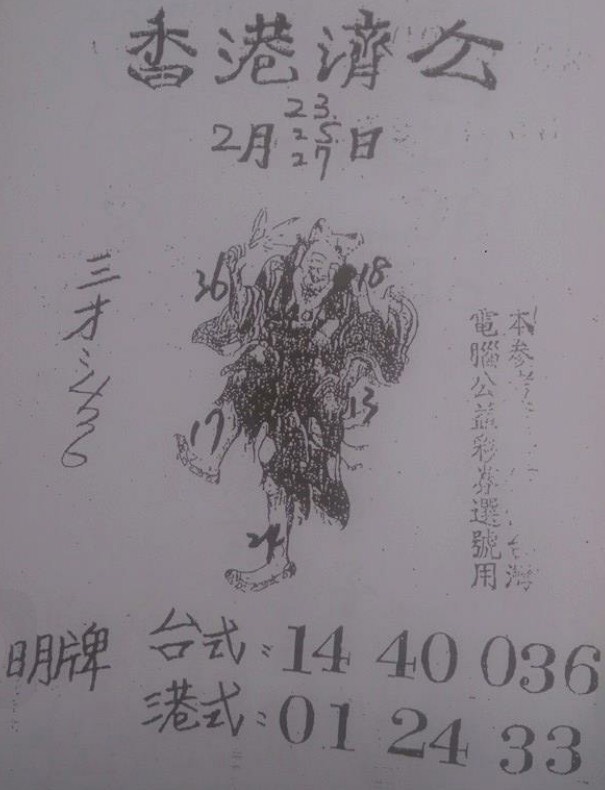 香港濟公
23
2月25日
27
36
18
三才:436
17
13
24
本參
台灣
電腦公益彩券選號用
明牌
台式:14 40 036
港式:01 24 33